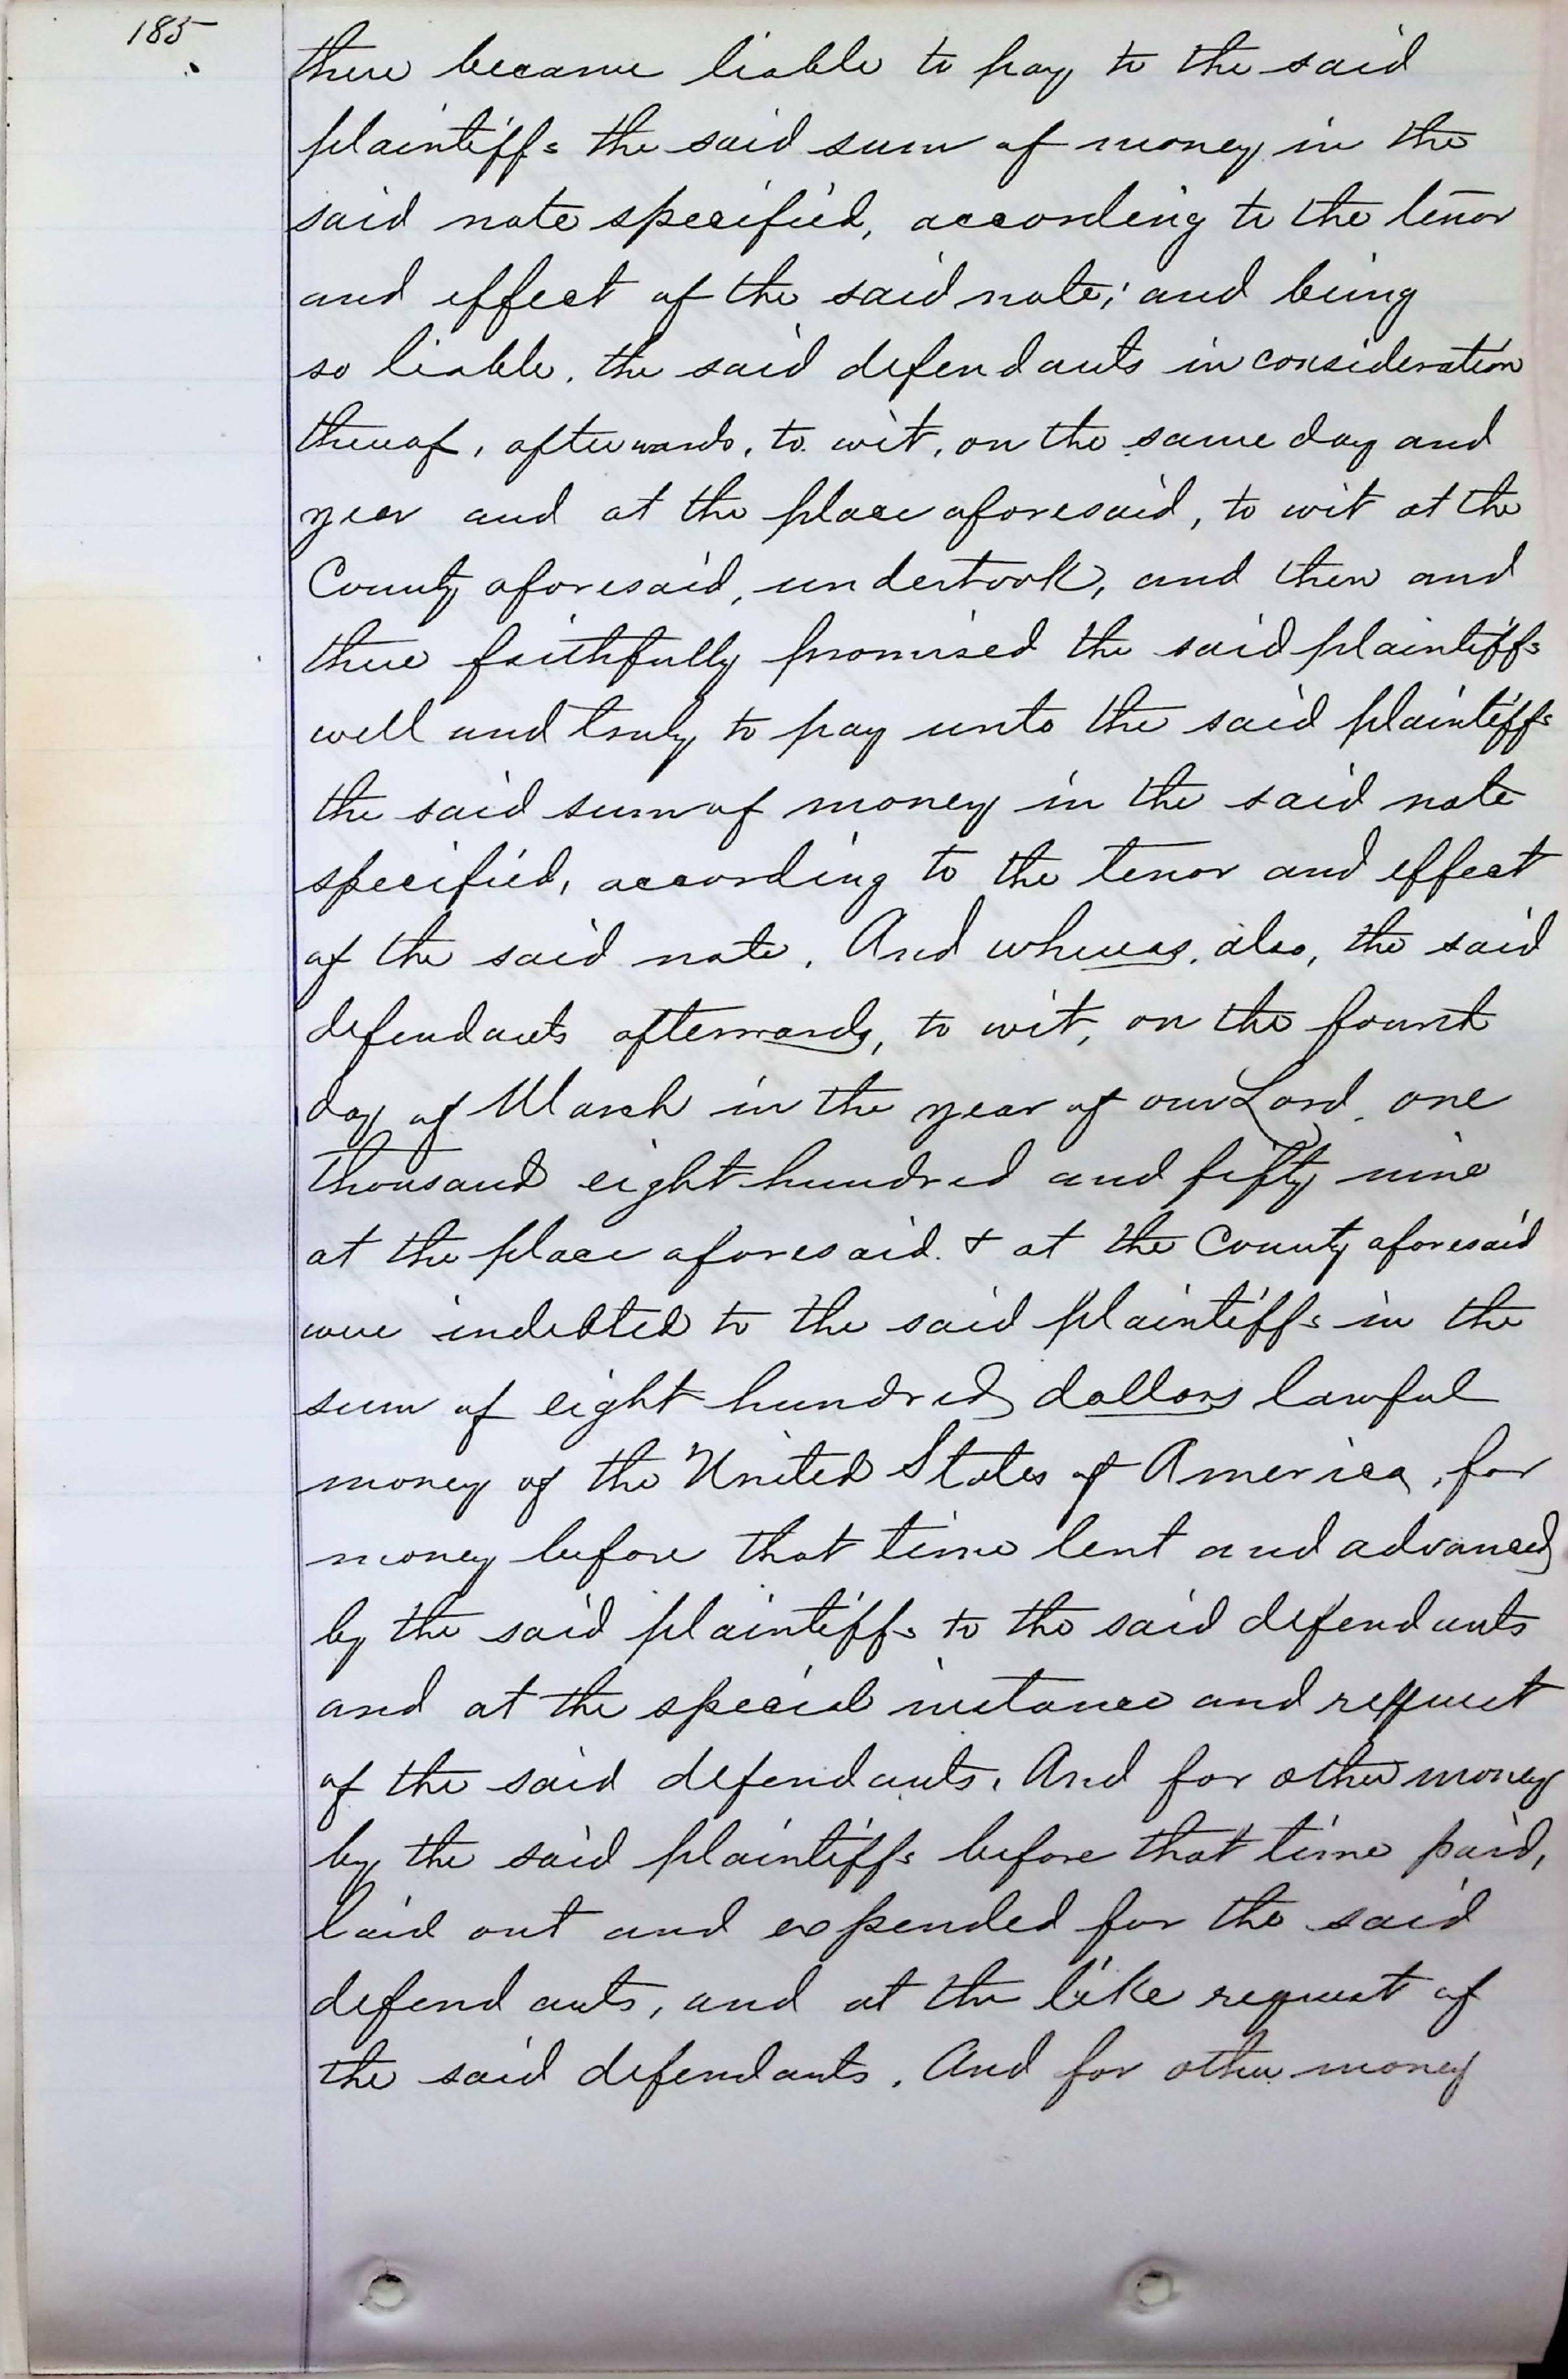 185
there became liable to pay to the said
plaintiffs the said sum of money in the
said note specified, according to the tenor
and effect of the said note; and being
so liable, the said defendants in consideration
thereof, afterwards, to wit, on the same day and
year and at the place aforesaid, to wit at the
County aforesaid, undertook, and then and
there faithfully promised the said plaintiffs
well and truly to pay unto the said plaintiffs
the said sum of money in the said note
specified, according to the tenor and effect
of the said note. And whereas, also, the said
defendants afterwards, to wit, on the fourth
day of March in the year of our Lord one
thousand eight hundred and fifty nine
at the place aforesaid & at the County aforesaid
were indebted to the said plaintiffs in the
sum of eight hundred dollars lawful
money of the United States of America, for
money before that time lent and advanced
by the said plaintiffs to the said defendants
and at the special instance and request
of the said defendants. And for other money
by the said plaintiffs before that time paid,
laid out and expended for the said
defendants, and at the like request of
the said defendants. And for other money